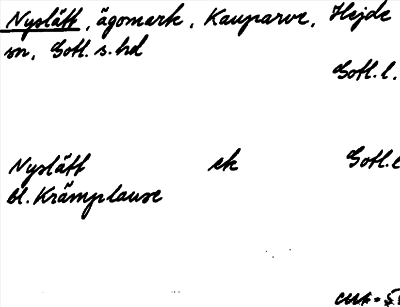 Nyslätt, ägomark, Kauparve, Hejde
sn, Gotl. s. hd
Gotl. l.
Nyslätt ek Gotl.
bl. Krämplause